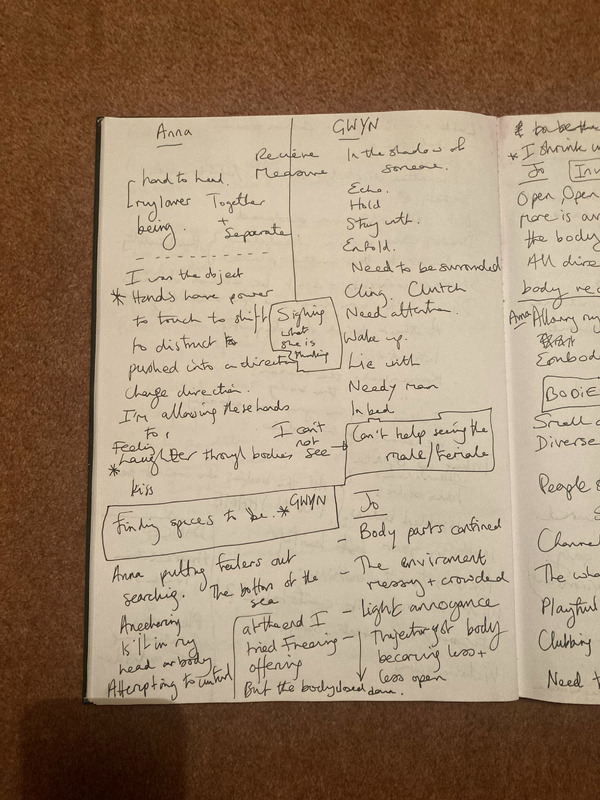 Anna
hard to head.
my layer Together
being. + Separate
I was the object
* Hands have power
to touch to shift
to distract to
pushed into a direction
change direction.
I'm allowing these hands
to,
Feeling
* laughter through bodies
kiss
Recieve
Measure
Sighing
what
she is
thinking
I can't
not
see
GWYN
In the shadow of
someone.
Echo.
Hold
Stay with.
Enfold.
Need to be surrounded
Cling. Clutch
Need attention.
Wake up.
Lie with
Needy man
In bed
Can't help seeing the
male/female
Finding spaces to be. * GWYN
Anna putting feelers out
searching. The bottom of the
sea
Anchoring
Is it in my
head or body
Attempting to control
at the end I
tried Freeing
offering
But the body closed down.
Jo
- Body parts confined
- The enviroment
messy + crowded
- Light annoyance
- Trajectory of body
becoming less +
less open
to be the
* I shrink
Jo
Open, Open
more is
the body
All dire
body rec
Anna Allowing my
Embod
BODIE
Small
Diverse
People
Channel
The wha
Playful
Clubbing
Need t